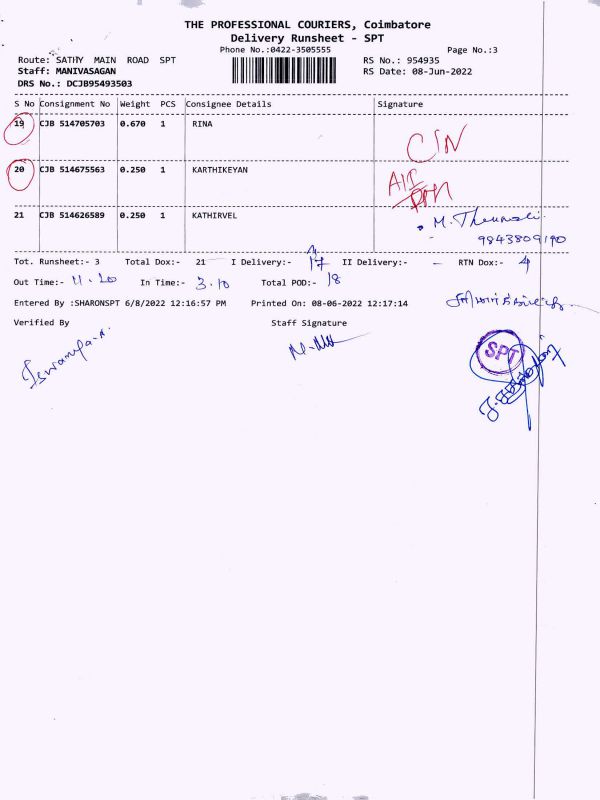 THE PROFESSIONAL COURIERS, Coimbatore
Delivery Runsheet - SPT
Phone No.:0422-3505555
Page No.:3
Route: SATHY MAIN ROAD SPT
RS No.: 954935
Staff: MANIVASAGAN
RS Date: 08-Jun-2022
DRS No.: DCJB95493503
S No Consignment No Weight PCS Consignee Details Signature
19 CJB 514705703 0.670 1 RINA
C/N
20 CJB 514675563 0.250 1 KARTHIKEYAN
21 CJB 514626589 0.250 1 KATHIRVEL
9843809190
Tot. Runsheet:- 3 Total Dox:- 21 I Delivery:- 17 II Delivery:- — RTN Dox:- 4
Out Time:- 11.20 In Time:- 3.10 Total POD:- 18
Entered By :SHARONSPT 6/8/2022 12:16:57 PM Printed On: 08-06-2022 12:17:14
Verified By Staff Signature
SPT